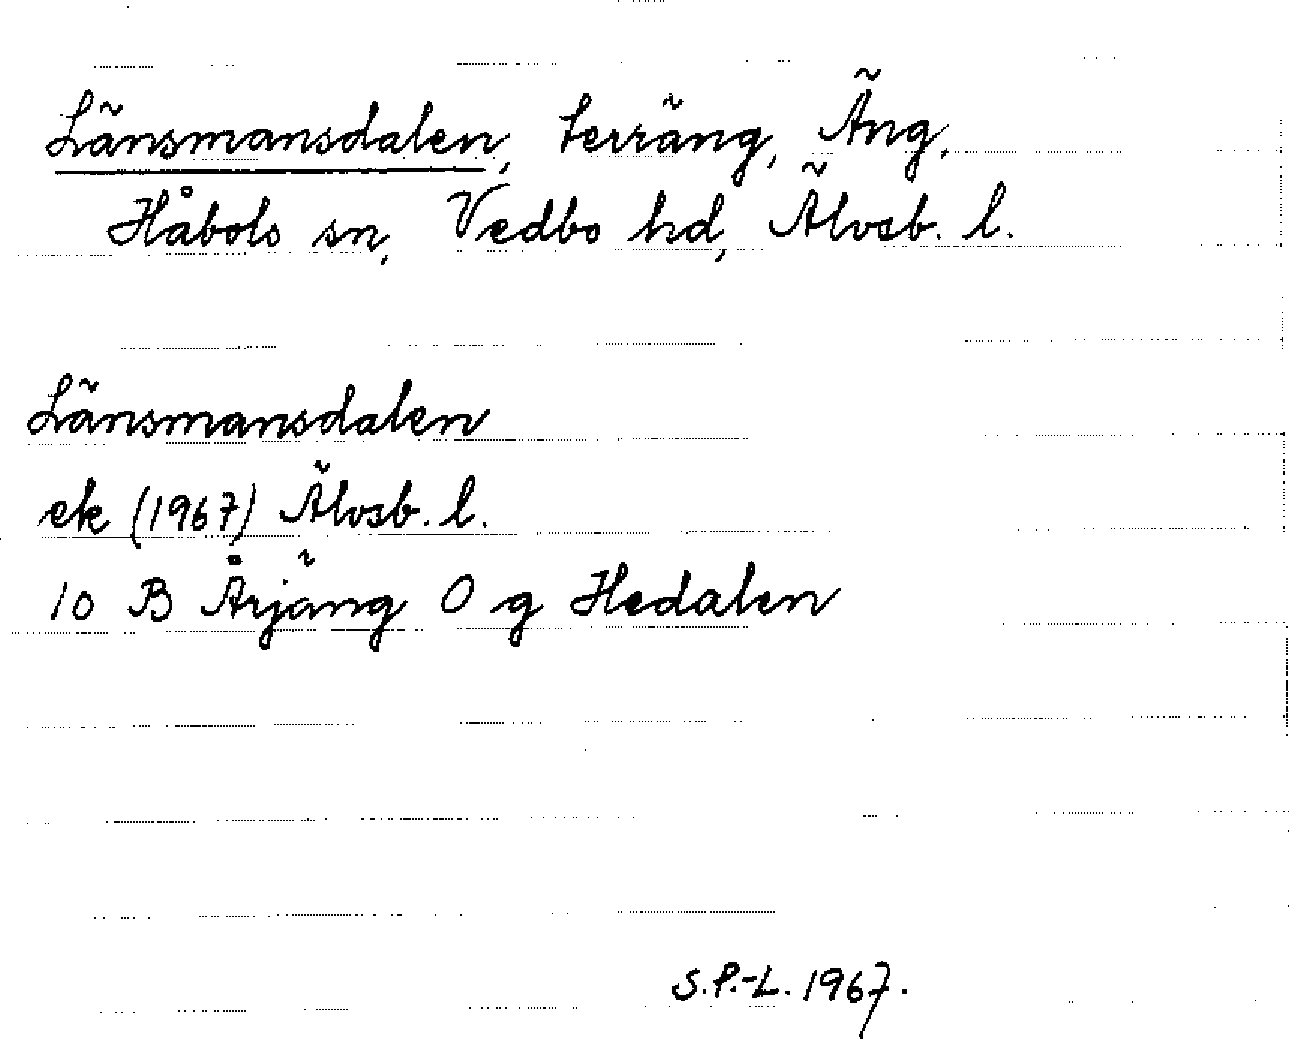 Länsmansdalen, terräng, Äng,
Håbols sn, Vedbo hd, Älvsb. l.
Länsmansdalen
ek (1967) Älvsb. l.
10 B Årjäng 0 g Hedalen
S.P.-L. 1967.